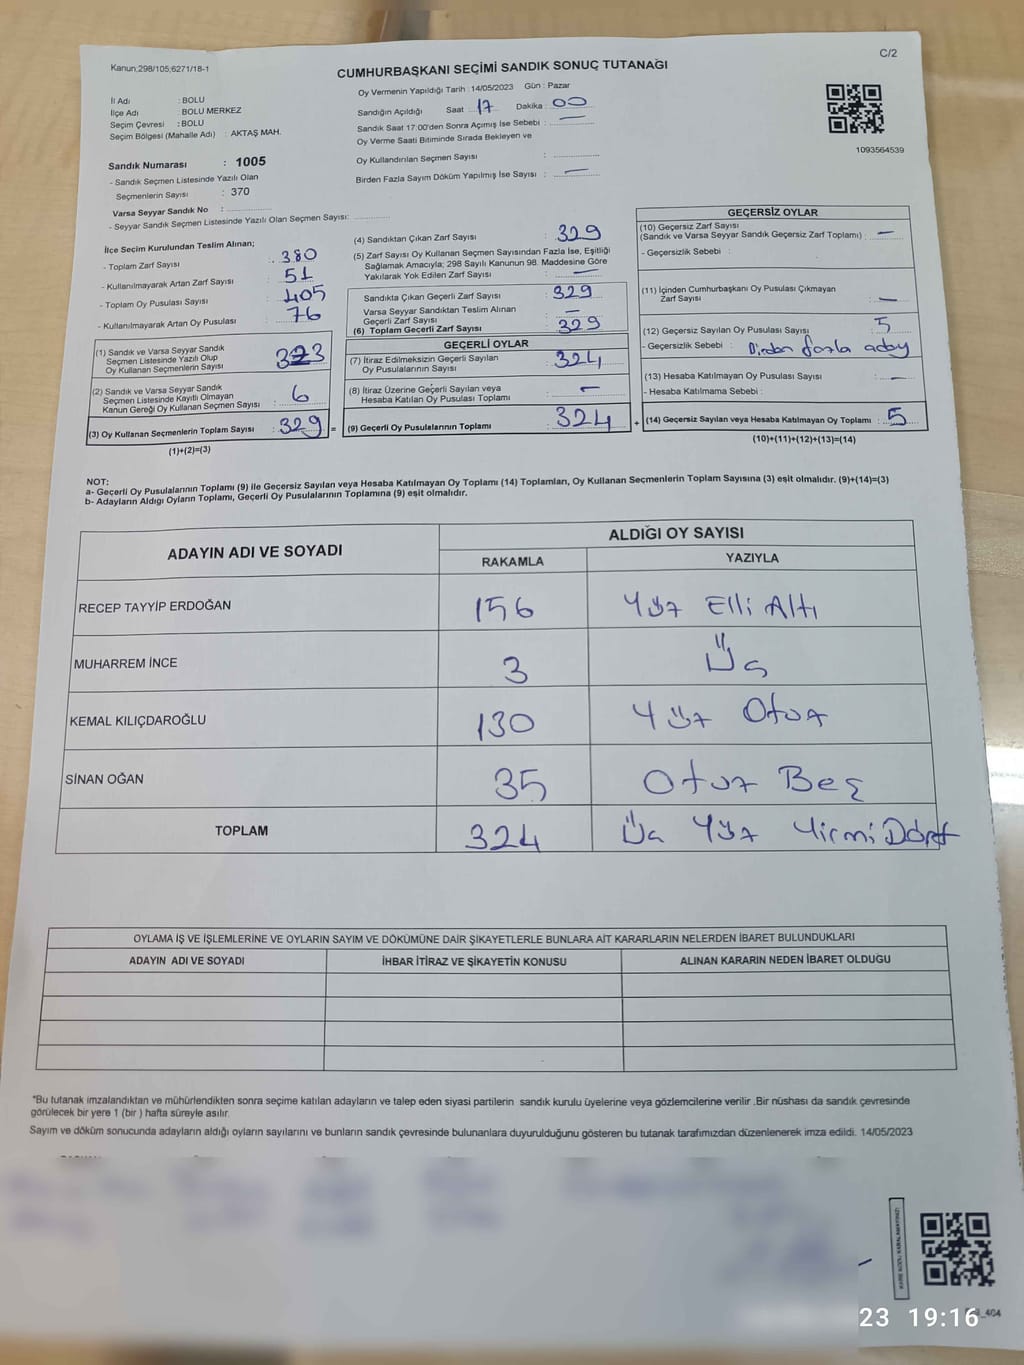 Kanun;298/105;6271/18-1
C/2
CUMHURBAŞKANI SEÇİMİ SANDIK SONUÇ TUTANAĞI
İl Adı : BOLU
İlçe Adı : BOLU MERKEZ
Seçim Çevresi : BOLU
Seçim Bölgesi (Mahalle Adı) : AKTAŞ MAH.
Sandık Numarası : 1005
- Sandık Seçmen Listesinde Yazılı Olan
Seçmenlerin Sayısı : 370
Varsa Seyyar Sandık No :
- Seyyar Sandık Seçmen Listesinde Yazılı Olan Seçmen Sayısı:
Oy Vermenin Yapıldığı Tarih : 14/05/2023 Gün : Pazar
Sandığın Açıldığı Saat : 17 Dakika : 00
Sandık Saat 17:00'den Sonra Açımış İse Sebebi : —
Oy Verme Saati Bitiminde Sırada Bekleyen ve
Oy Kullandırılan Seçmen Sayısı :
Birden Fazla Sayım Döküm Yapılmış İse Sayısı : —
1093564539
İlçe Seçim Kurulundan Teslim Alınan;
- Toplam Zarf Sayısı : 380
- Kullanılmayarak Artan Zarf Sayısı : 51
- Toplam Oy Pusulası Sayısı : 405
- Kullanılmayarak Artan Oy Pusulası : 76
(1) Sandık ve Varsa Seyyar Sandık
Seçmen Listesinde Yazılı Olup
Oy Kullanan Seçmenlerin Sayısı : 323
(2) Sandık ve Varsa Seyyar Sandık
Seçmen Listesinde Kayıtlı Olmayan
Kanun Gereği Oy Kullanan Seçmen Sayısı : 6
(3) Oy Kullanan Seçmenlerin Toplam Sayısı : 329 =
(1)+(2)=(3)
(4) Sandıktan Çıkan Zarf Sayısı : 329
(5) Zarf Sayısı Oy Kullanan Seçmen Sayısından Fazla İse, Eşitliği
Sağlamak Amacıyla; 298 Sayılı Kanunun 98. Maddesine Göre
Yakılarak Yok Edilen Zarf Sayısı : —
Sandıkta Çıkan Geçerli Zarf Sayısı : 329
Varsa Seyyar Sandıktan Teslim Alınan
Geçerli Zarf Sayısı : —
(6) Toplam Geçerli Zarf Sayısı : 329
GEÇERLİ OYLAR
(7) İtiraz Edilmeksizin Geçerli Sayılan
Oy Pusulalarının Sayısı : 324
(8) İtiraz Üzerine Geçerli Sayılan veya
Hesaba Katılan Oy Pusulası Toplamı : —
(9) Geçerli Oy Pusulalarının Toplamı : 324 +
GEÇERSİZ OYLAR
(10) Geçersiz Zarf Sayısı
(Sandık ve Varsa Seyyar Sandık Geçersiz Zarf Toplamı) : —
- Geçersizlik Sebebi :
(11) İçinden Cumhurbaşkanı Oy Pusulası Çıkmayan
Zarf Sayısı : —
(12) Geçersiz Sayılan Oy Pusulası Sayısı : 5
- Geçersizlik Sebebi : Birden fazla aday
(13) Hesaba Katılmayan Oy Pusulası Sayısı : —
- Hesaba Katılmama Sebebi :
(14) Geçersiz Sayılan veya Hesaba Katılmayan Oy Toplamı : 5
(10)+(11)+(12)+(13)=(14)
NOT:
a- Geçerli Oy Pusulalarının Toplamı (9) ile Geçersiz Sayılan veya Hesaba Katılmayan Oy Toplamı (14) Toplamları, Oy Kullanan Seçmenlerin Toplam Sayısına (3) eşit olmalıdır. (9)+(14)=(3)
b- Adayların Aldığı Oyların Toplamı, Geçerli Oy Pusulalarının Toplamına (9) eşit olmalıdır.
ADAYIN ADI VE SOYADI ALDIĞI OY SAYISI
RAKAMLA YAZIYLA
RECEP TAYYİP ERDOĞAN 156 Yüz Elli Altı
MUHARREM İNCE 3 Üç
KEMAL KILIÇDAROĞLU 130 Yüz Otuz
SİNAN OĞAN 35 Otuz Beş
TOPLAM 324 Üç Yüz Yirmi Dört
OYLAMA İŞ VE İŞLEMLERİNE VE OYLARIN SAYIM VE DÖKÜMÜNE DAİR ŞİKAYETLERLE BUNLARA AİT KARARLARIN NELERDEN İBARET BULUNDUKLARI
ADAYIN ADI VE SOYADI İHBAR İTİRAZ VE ŞİKAYETİN KONUSU ALINAN KARARIN NEDEN İBARET OLDUĞU
*Bu tutanak imzalandıktan ve mühürlendikten sonra seçime katılan adayların ve talep eden siyasi partilerin sandık kurulu üyelerine veya gözlemcilerine verilir .Bir nüshası da sandık çevresinde
görülecek bir yere 1 (bir ) hafta süreyle asılır.
Sayım ve döküm sonucunda adayların aldığı oyların sayılarını ve bunların sandık çevresinde bulunanlara duyurulduğunu gösteren bu tutanak tarafımızdan düzenlenerek imza edildi. 14/05/2023
23 19:16
_404